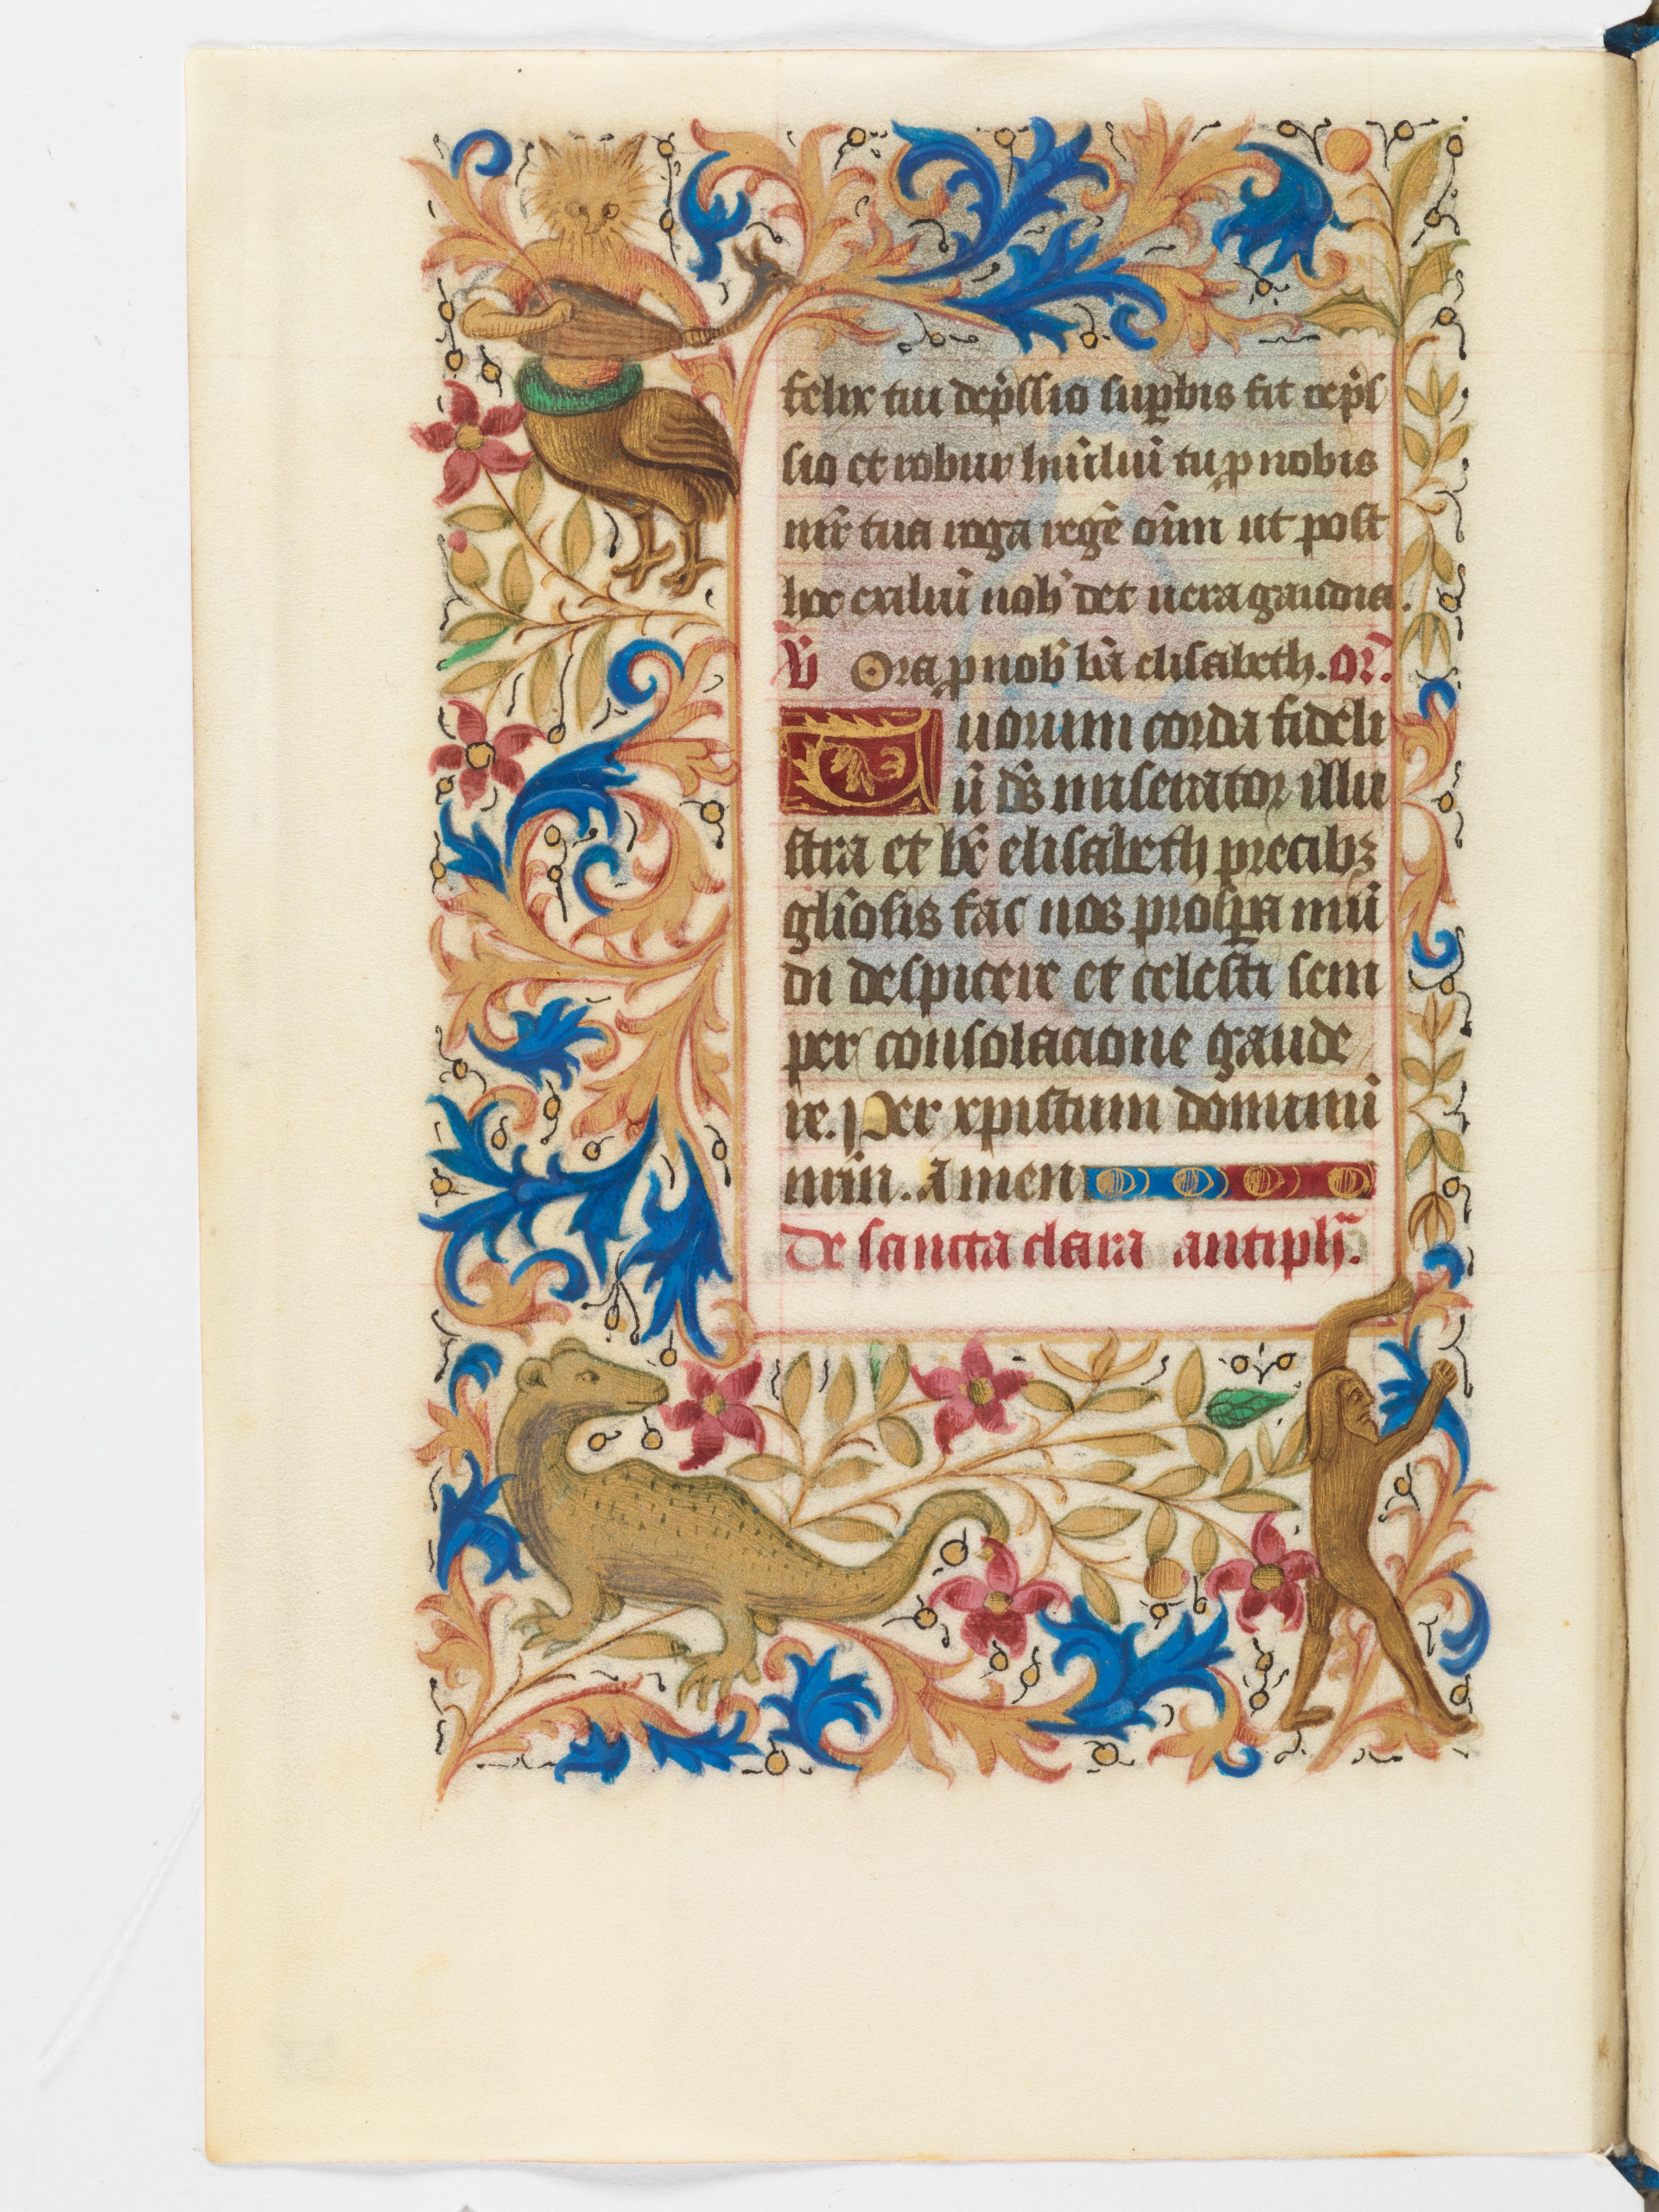 felix tui dep̃ssio sup̱bis fit rep̃s
sio et robur hũiliũ tu ꝓ nobis
mr̃ tua roga regẽ oĩm ut post
hoc exiliũ nob̾ det uera gaudia.
℣ Ora ꝓ nob̾ bã elisabeth. Or̃.
Tuorum corda fideli
ũ ds̃ miserator illu
stra et be͂ elisabeth precibꝫ
glĩosis fac nos prosp̱a mũ
di despicere et celesti sem
per consolacione gaude
re. Per xpistum dominũ
nrm̃. Amen
De sancta clara antiph̃.